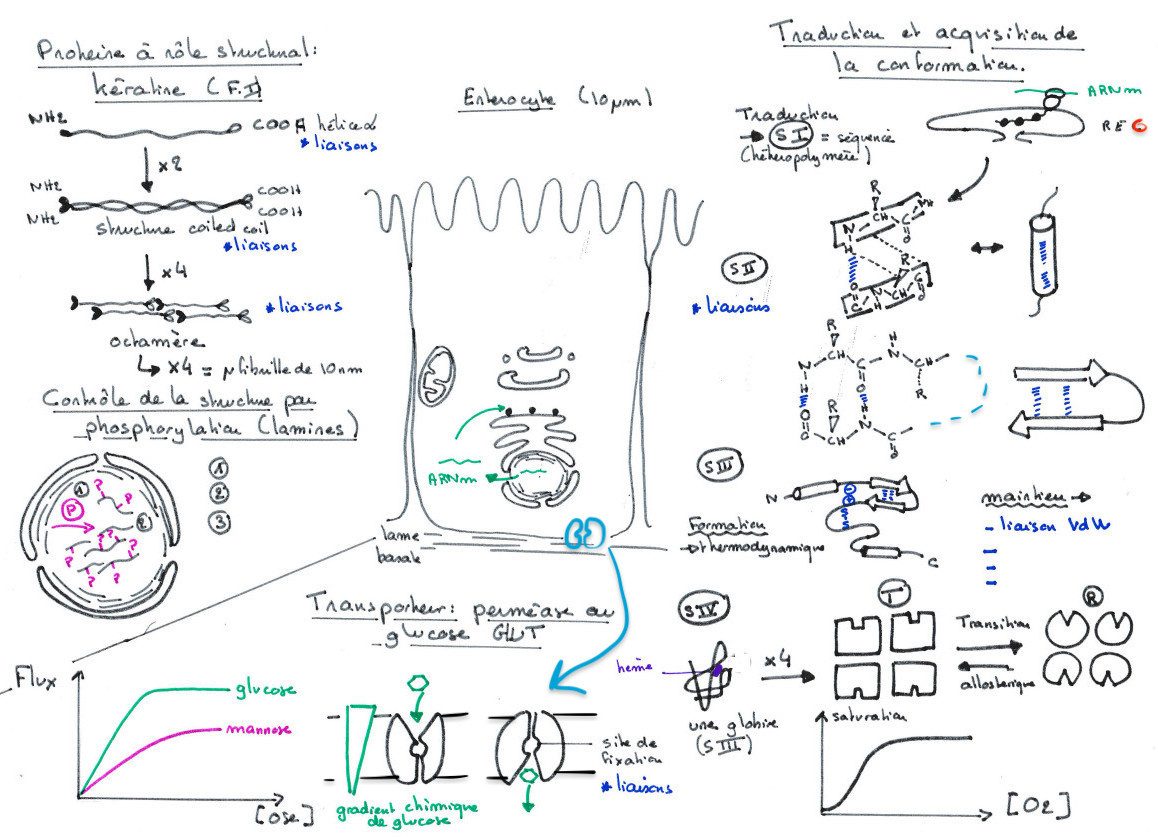 Protéine à rôle structural:
kératine (F.I)
NH2
COOH hélice α
* liaisons
x2
NH2
NH2
COOH
COOH
structure coiled coil
* liaisons
x4
* liaisons
octamère
↳ x4 = μfibrille de 10nm
Contrôle de la structure par
phosphorylation (lamines)
P
P
P
P
P
P
P
1
2
1
2
3
Enterocyte (10μm)
ARNm
lame
basale
Transporteur: perméase au
glucose GLUT
Flux
glucose
mannose
[Ose]
gradient chimique
de glucose
site de
fixation
* liaisons
Traduction et acquisition de
la conformation.
Traduction
→ SI = séquence
(hétéropolymère)
ARNm
REG
SII
* liaisons
R
N
H
CH
C
O
NH
R
O
C
N
CH
C
O
R
N
H
CH
C
O
N
H
CH
R
O
C
R
CH
H
N
C
O
SIII
N
C
Formation
→ thermodynamique
maintien →
- liaison VdW
-
-
-
SIV
hème
une globine
(SIII)
x4
T
R
Transition
allostérique
saturation
[O2]